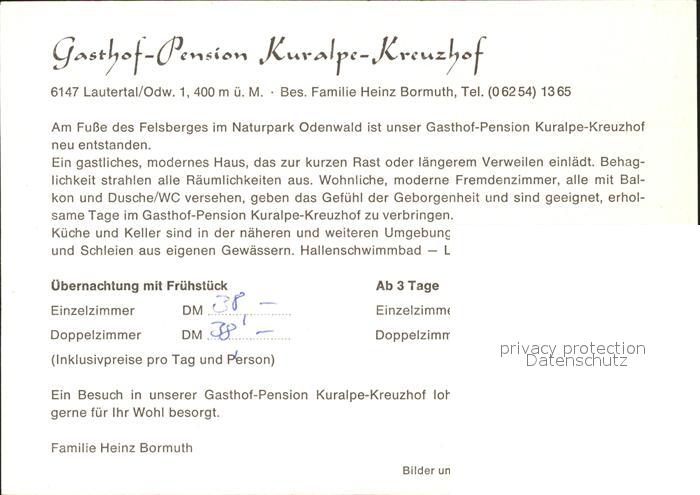 Gasthof-Pension Kuralpe-Kreuzhof
6147 Lautertal/Odw. 1, 400 m ü. M. · Bes. Familie Heinz Bormuth, Tel. (0 62 54) 13 65
Am Fuße des Felsberges im Naturpark Odenwald ist unser Gasthof-Pension Kuralpe-Kreuzhof
neu entstanden.
Ein gastliches, modernes Haus, das zur kurzen Rast oder längerem Verweilen einlädt. Behag-
lichkeit strahlen alle Räumlichkeiten aus. Wohnliche, moderne Fremdenzimmer, alle mit Bal-
kon und Dusche/WC versehen, geben das Gefühl der Geborgenheit und sind geeignet, erhol-
same Tage im Gasthof-Pension Kuralpe-Kreuzhof zu verbringen.
Küche und Keller sind in der näheren und weiteren Umgebung
und Schleien aus eigenen Gewässern. Hallenschwimmbad – L
Übernachtung mit Frühstück Ab 3 Tage
Einzelzimmer DM 38,— Einzelzimme
Doppelzimmer DM 38,— Doppelzimm
(Inklusivpreise pro Tag und Person)
privacy protection
Datenschutz
Ein Besuch in unserer Gasthof-Pension Kuralpe-Kreuzhof loh
gerne für Ihr Wohl besorgt.
Familie Heinz Bormuth
Bilder un